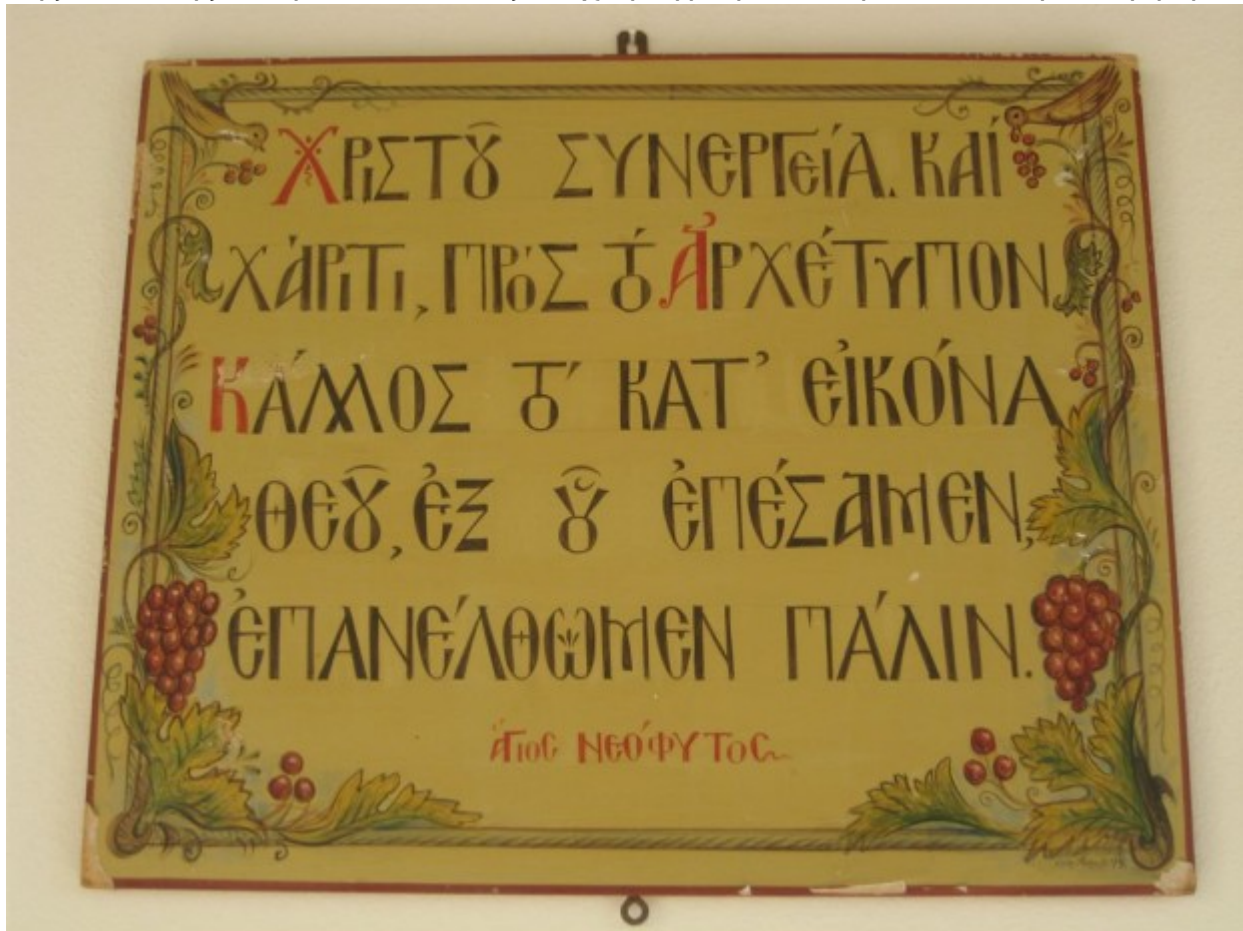 Χριστȣ͂ ΣΥΝΕΡΓείΑ. ΚΑί
ΧάΡΙΤΙ, ΠΡόΣ τό ἈΡΧέΤΥΠΟΝ
ΚάΛΛΟΣ τό ΚΑΤ' ΕἰΚόΝΑ
ΘΕȣ͂, ἐΞ ȣ͗ ἐΠέΣΑΜΕΝ,
ἐΠΑΝέΛΘΩΜΕΝ ΠάΛΙΝ.
ἍΓΙΟC ΝΕόΦΥΤΟC